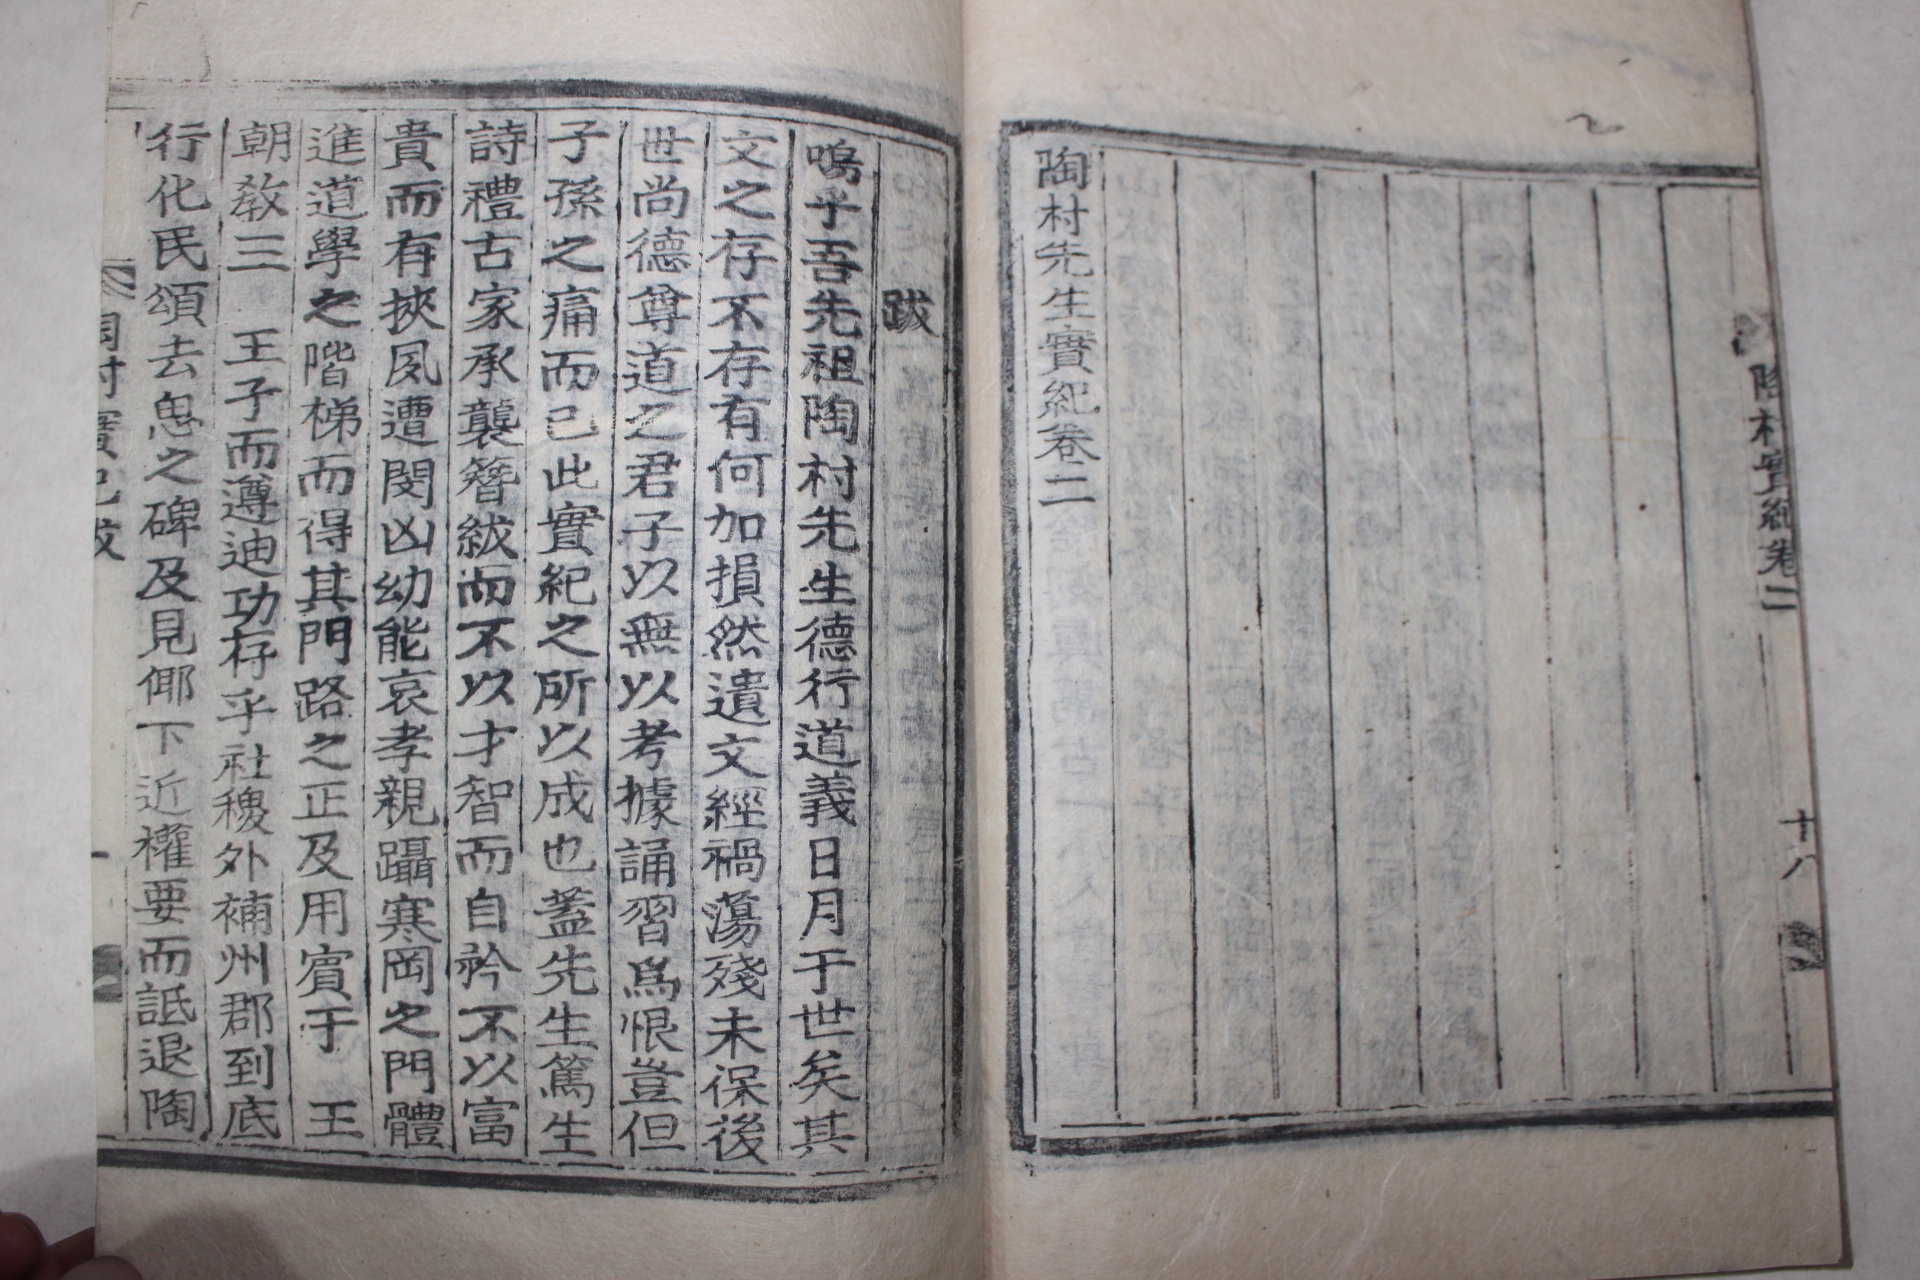 陶村實紀卷二
十八
陶村先生實紀卷二
跋
嗚乎吾先祖陶村先生德行道義日月于世矣其
文之存不存有何加損然遺文經禍蕩殘未保後
世尚德尊道之君子以無以考據誦習爲恨豈但
子孫之痛而已此實紀之所以成也蓋先生篤生
詩禮古家承襲簪紱而不以才智而自矜不以富
貴而有挾夙遭閔凶幼能哀孝親躡寒岡之門體
進道學之階梯而得其門路之正及用賓于 王
朝敎三 王子而遵迪功存乎社稷外補州郡到底
行化民頌去思之碑及見倻下近權要而詆退陶
陶村實紀跋
一